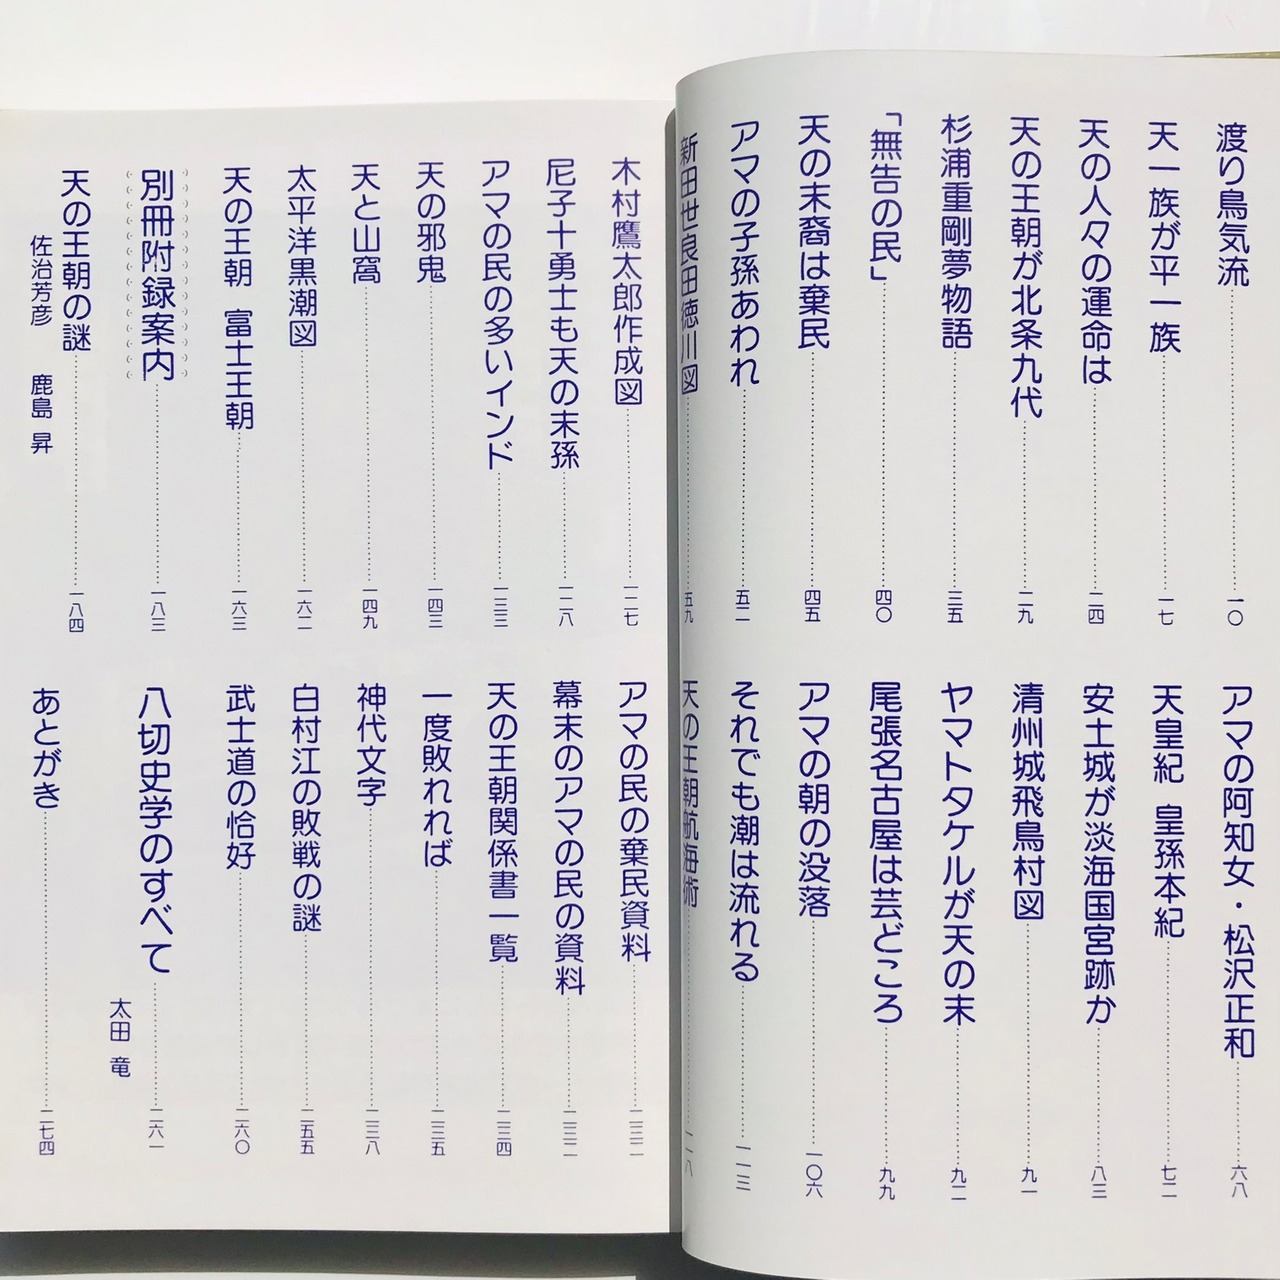 渡り鳥気流 一〇
天一族が平一族 一七
天の人々の運命は 二四
天の王朝が北条九代 二九
杉浦重剛夢物語 三五
「無告の民」 四〇
天の末裔は棄民 四五
アマの子孫あわれ 五二
新田世良田徳川図 五九
アマの阿知女・松沢正和 六八
天皇紀 皇孫本紀 七二
安土城が淡海国宮跡か 八三
清州城飛鳥村図 九一
ヤマトタケルが天の末 九二
尾張名古屋は芸どころ 九九
アマの朝の没落 一〇六
それでも潮は流れる 一一三
天の王朝航海術 一一八
木村鷹太郎作成図 一二七
尼子十勇士も天の末孫 一二八
アマの民の多いインド 一三三
天の邪鬼 一四三
天と山窩 一四九
太平洋黒潮図 一六二
天の王朝 富士王朝 一六三
別冊附録案内 一八三
天の王朝の謎 一八四
佐治芳彦 鹿島昇
アマの民の棄民資料
幕末のアマの民の資料
天の王朝関係書一覧 二三四
一度敗れれば 二三五
神代文字 二三八
白村江の敗戦の謎 二五五
武士道の恰好 二六〇
八切史学のすべて 二六一
太田竜
あとがき 二七四